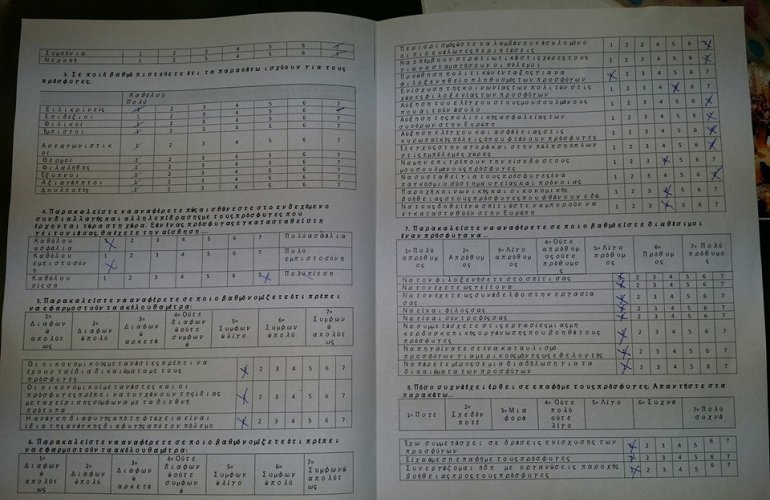 Συμπόνια 1 2 3 4 5 6 7
Ντροπή 1 2 3 4 5 6 7
3. Σε ποιό βαθμό πιστεύετε ότι τα παρακάτω ισχύουν για τους
πρόσφυγες;
Καθόλου
Πολύ
Ειλικρινείς 1 2 3 4 5 6 7
Επιδέξιοι 1 2 3 4 5 6 7
Φιλικοί 1 2 3 4 5 6 7
Έμπιστοι 1 2 3 4 5 6 7
Ανταγωνιστικ
οί 1 2 3 4 5 6 7
Θερμοί 1 2 3 4 5 6 7
Φιλαλήθης 1 2 3 4 5 6 7
Έξυπνοι 1 2 3 4 5 6 7
Αξιαγάπητοι 1 2 3 4 5 6 7
Δουλευτές 1 2 3 4 5 6 7
4. Παρακαλείστε να αναφέρετε πώς αισθάνεστε στο ενδεχόμενο
συνδιαλλαγής και αλληλεπίδρασης με τους πρόσφυγες που
έρχονται τώρα στη χώρα. Εάν ένας πρόσφυγας εγκατασταθεί στη
γειτονιά σας, θα είχετε την αίσθηση...
Καθόλου
ασφάλια 1 2 3 4 5 6 7 Πολύ ασφάλια
Καθόλου
εμπιστοσύν
η 1 2 3 4 5 6 7 Πολύ
εμπιστοσύνη
Καθόλου
πίεση 1 2 3 4 5 6 7 Πολύ πίεση
5. Παρακαλείστε να αναφέρετε σε ποιο βαθμό νομίζετε ότι πρέπει
να εφαρμοστούν τα ακόλουθα μέτρα:
1=
Διαφων
ώ
απολύτ
ως
2=
Διαφων
ώ πολύ
3=
Διαφων
ώ
αρκετά
4= Ούτε
διαφων
ώ ούτε
συμφων
ώ
5=
Συμφων
ώ λίγο
6=
Συμφων
ώ πολύ
7=
Συμφων
ώ
απολύτ
ως
Οι οικονομικούς μετανάστες πρέπει να
έχουν τα ίδια δικαιώματα με τους
πρόσφυγες 1 2 3 4 5 6 7
Οι οικονομικοί μετανάστες και οι
πρόσφυγες πρέπει να τυγχάνουν της ίδιας
μεταχείρισης σύμφωνα με τα διεθνή
πρότυπα 1 2 3 4 5 6 7
Η ανάγκη διαφυγής από τη φτώχεια είναι
ίδια της ανάγκης διαφυγής από τον πόλεμο 1 2 3 4 5 6 7
6. Παρακαλείστε να αναφέρετε σε ποιο βαθμό νομίζετε ότι πρέπει
να εφαρμοστούν τα ακόλουθα μέτρα:
1=
Διαφων
ώ
απολύτ
ως
2=
Διαφων
ώ πολύ
3=
Διαφων
ώ
αρκετά
4= Ούτε
διαφων
ώ ούτε
συμφων
ώ
5=
Συμφων
ώ λίγο
6=
Συμφων
ώ πολύ
7=
Συμφων ώ
απολύτ
ως
Περιορισμός ώστε να λαμβάνουν άσυλο μόνο
οι πιο ευάλωτες περιπτώσεις 1 2 3 4 5 6 7
Να επέμβουν στρατιωτικά στις χώρες τους
για να σταματήσουν οι πόλεμοι 1 2 3 4 5 6 7
Προώθηση πολιτικών ένταξης για να
φιλοξενηθεί ο πληθυσμός των προσφύγων 1 2 3 4 5 6 7
Ενίσχυση της κοινωνίας των πολιτών στις
χώρες φιλοξενίας των προσφύγων 1 2 3 4 5 6 7
Αύξηση του ελέγχου στους μουσουλμάνους
που αιτούν άσυλο 1 2 3 4 5 6 7
Αύξηση της πολιτικής ασφαλείας των
συνόρων στην Ευρώπη 1 2 3 4 5 6 7
Αύξηση ελέγχου και ασφάλειας στις
ευρωπαϊκές πόλεις, όπου φτάνουν πρόσφυγες 1 2 3 4 5 6 7
Έλεγχος στην αγορά και στην πώληση όπλων
σε εμπόλεμες χώρες 1 2 3 4 5 6 7
Να μην επιτρέπουν την είσοδο στους
μουσουλμάνους πρόσφυγες 1 2 3 4 5 6 7
Να συσταθεί για τους πρόσφυγες ένα
παγκόσμιο σύστημα υγείας και πρόνοιας 1 2 3 4 5 6 7
Παροχή κοινωνικής και οικονομικής
βοήθειας στους πρόσφυγες που φθάνουν εδώ 1 2 3 4 5 6 7
Να τους δοθεί ένα σπίτι ώστε να μπορούν να
εγκατασταθούν στην Ευρώπη 1 2 3 4 5 6 7
7. Παρακαλείστε να αναφέρετε σε ποιο βαθμό είστε διαθέσιμοι
έναν πρόσφυγα να...
1= Πολύ
απρόθυμ
ος
2=
Απρόθυμ
ος
3= Λίγο
απρόθυμ
ος
4= Ούτε
απρόθυμ
ος ούτε
πρόθυμο
ς
5= Λίγο
πρόθυμ
ος
6=
Πρόθυμ
ος
7= Πολύ
πρόθυμ
ος
Να τον φιλοξενήσετε στο σπίτι σας 1 2 3 4 5 6 7
Να τον έχετε ως γείτονα 1 2 3 4 5 6 7
Να τον έχετε ως συνάδελφο στην εργασία
σας 1 2 3 4 5 6 7
Να είναι φίλος σας 1 2 3 4 5 6 7
Να είναι σύντροφός σας 1 2 3 4 5 6 7
Να συμμετάσχετε στις εργασίες μιας μη
κερδοσκοπικής οργάνωσης που βοηθά τους
πρόσφυγες 1 2 3 4 5 6 7
Να πηγαίνατε σε ένα καταυλισμό
προσφύγων για μερικούς μήνες ως εθελοντής 1 2 3 4 5 6 7
Να πάρετε μέρος σε μια διαδήλωση για τα
δικαιώματα των προσφύγων 1 2 3 4 5 6 7
8. Πόσο συχνά έχει έρθει σε επαφή με τους πρόσφυγες; Απαντήστε στα
παρακάτω...
1= Ποτέ
2=
Σχεδόν
ποτέ
3= Μια
φορά
4= Ούτε
πολύ
ούτε
λίγο
5= Λίγο
6= Συχνά
7= Πολύ
συχνά
Έχω συμμετάσχει σε δράσεις ενίσχυσης των
προσφύγων 1 2 3 4 5 6 7
Είχα άμεση επαφή με τους πρόσφυγες 1 2 3 4 5 6 7
Συνεργάζομαι ήδη με οργανώσεις παροχής
βοήθειας προς τους πρόσφυγες 1 2 3 4 5 6 7